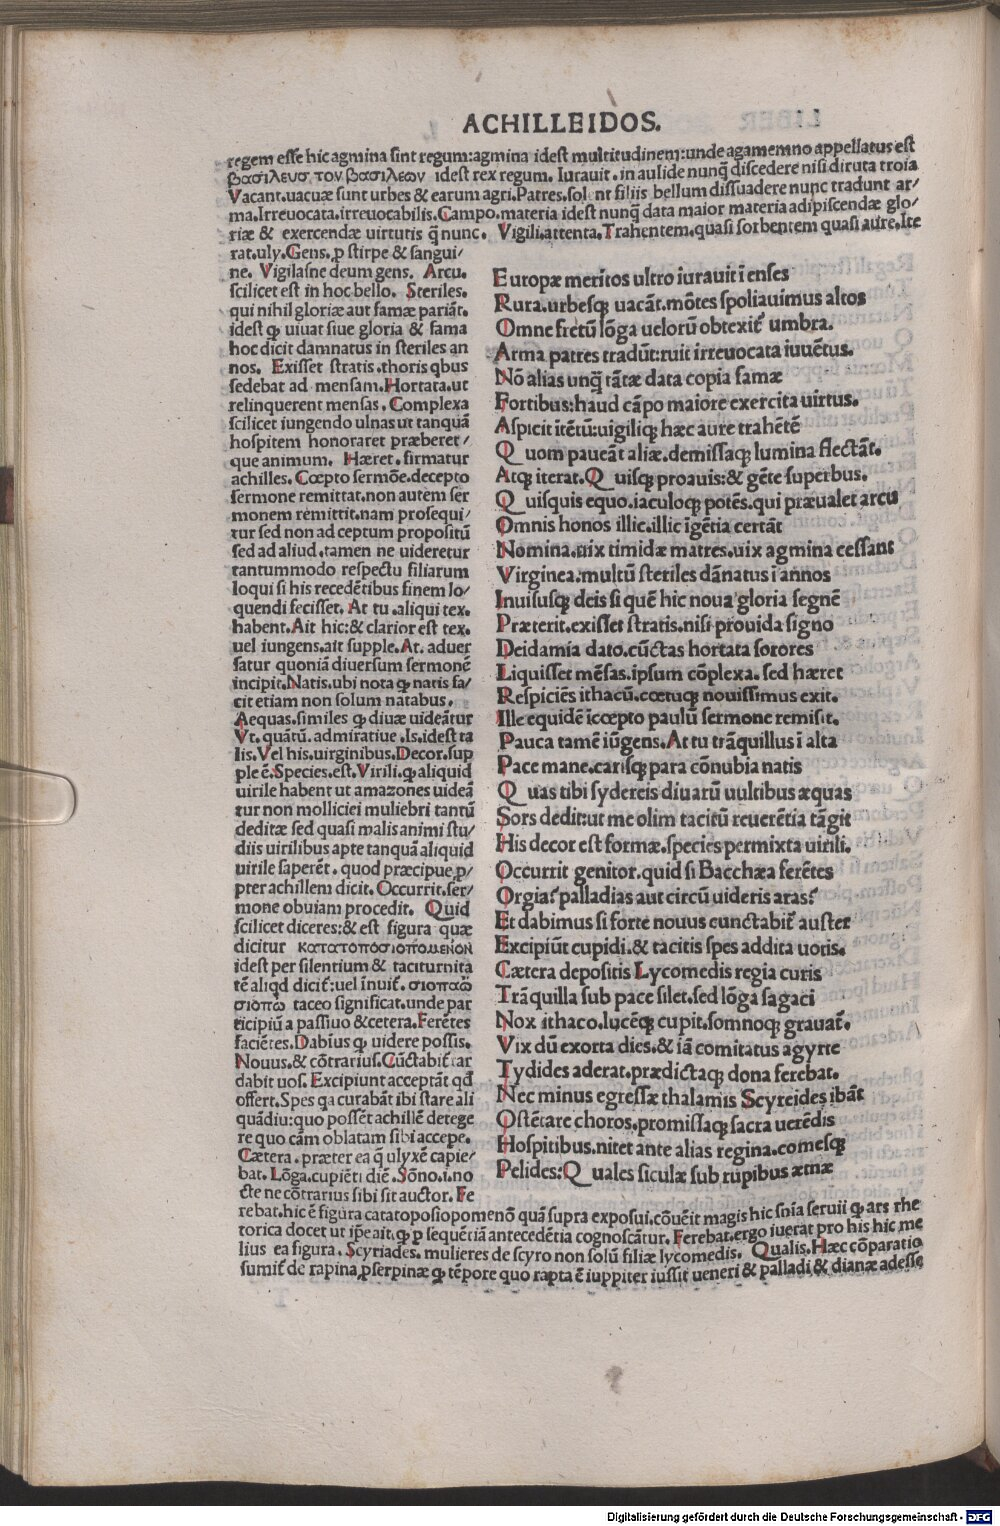 ACHILLEIDOS.
regem esse hic agmina sint regum:agmina idest multitudinem:unde agamemno appellatus est
βασιλευσ τον βασιλεων idest rex regum. Iurauit. in aulide nunq̃ discedere nisi diruta troia
Vacant.uacuæ sunt urbes & earum agri.Patres.sol nt filiis bellum dissuadere nunc tradunt ar/
ma.Irreuocata.irreuocabilis.Campo.materia idest nunq̃ data maior materia adipiscendæ glo/
riæ & exercendæ uirtutis q̃ nunc. Vigili.attenta.Trahentem.quasi sorbentem quasi aure.Ite
rat.uly.Gens.ꝑ stirpe & sangui/
ne. Vigilasne deum gens. Arcu.
scilicet est in hoc bello. Steriles.
qui nihil gloriæ aut famæ pariãt.
idest ꝙ uiuat siue gloria & fama
hoc dicit damnatus in steriles an
nos. Exisset stratis.thoris qbus
sedebat ad mensam.Hortata.ut
relinquerent mensas. Complexa
scilicet iungendo ulnas ut tanquã
hospitem honoraret præberet/
que animum. Hæret.firmatur
achilles. Cœpto sermõe.decepto
sermone remittat.non autem ser
monem remittit.nam prosequi/
tur sed non ad ceptum propositũ
sed ad aliud.tamen ne uideretur
tantummodo respectu filiarum
loqui si his recedẽtibus finem lo/
quendi fecisset. At tu.aliqui tex.
habent.Ait hic:& clarior est tex.
uel iungens.ait supple.At. aduer
satur quoniã diuersum sermonẽ
incipit.Natis.ubi nota ꝙ natis fa/
cit etiam non solum natabus.
Aequas.similes ꝙ diuæ uideãtur
Vt. quãtũ. admiratiue.Is.idest ta
lis.Vel his.uirginibus.Decor.sup
ple ẽ.Species.est.Virili.ꝙ aliquid
uirile habent ut amazones uideã
tur non molliciei muliebri tantũ
deditæ sed quasi malis animi stu/
diis uirilibus apte tanquã aliquid
uirile saperẽt. quod præcipue ꝓ/
pter achillem dicit. Occurrit.ser/
mone obuiam procedit. Quid
scilicet diceres:& est figura quæ
dicitur κατατοποσιοπομενον
idest per silentium & taciturnita
tẽ aliqd dicit̃:uel ĩnuit. σιοπαω
σιοπω taceo significat.unde par
ticipiũ a passiuo & cetera.Ferẽtes
faciẽtes.Dabius ꝙ uidere possis.
Nouus.& cõtrarius.Cũctabit̃ tar
dabit uos. Excipiunt acceptãt qd
offert.Spes qa curabãt ibi stare ali
quãdiu:quo possẽt achillẽ detege
re quo cãm oblatam sibi accepe.
Cætera.præter ea q̃ ulyxẽ capie/
bat. Lõga.cupiẽti diẽ.Sõno.i.no
cte ne cõtrarius sibi sit auctor. Fe
Europæ meritos ultro iurauit ĩ enses
Rura.urbesq; uacãt.mõtes spoliauimus altos
Omne fretũ lõga uelorũ obtexit̃ umbra.
Arma patres tradũt:ruit irreuocata iuuẽtus.
Nõ alias unq̃ tãtæ data copia famæ
Fortibus:haud cãpo maiore exercita uirtus.
Aspicit itẽtũ:uigiliq; hæc aure trahẽtẽ
Quom paueãt aliæ.demissaq; lumina flectãt.
Atq; iterat.Quisq; proauis:& gẽte superbus.
Quisquis equo.iaculoq; potẽs.qui præualet arcu
Omnis honos illic.illic igẽtia certãt
Nomina.uix timidæ matres.uix agmina cessant
Virginea.multũ steriles dãnatus ĩ annos
Inuisusq; deis si quẽ hic noua gloria segnẽ
Præterit.exisset stratis.nisi prouida signo
Deidamia dato.cũctas hortata sorores
Liquisset mẽsas.ipsum cõplexa. sed hæret
Respiciẽs ithacũ.cœtuq; nouissimus exit.
Ille equidẽ ĩcœpto paulũ sermone remisit.
Pauca tamẽ iũgens.At tu trãquillus ĩ alta
Pace mane.carisq; para cõnubia natis
Quas tibi sydereis diuarũ uultibus æquas
Sors dedit:ut me olim tacitũ reuerẽtia tãgit
His decor est formæ.species permixta uirili.
Occurrit genitor.quid si Bacchæa ferẽtes
Orgia?palladias aut circũ uideris aras?
Et dabimus si forte nouus cunctabit̃ auster
Excipiũt cupidi.& tacitis spes addita uotis.
Cætera depositis Lycomedis regia curis
Trãquilla sub pace silet.sed lõga sagaci
Nox ithaco.lucẽq; cupit.somnoq; grauat̃.
Vix dũ exorta dies.& iã comitatus agyrte
Tydides aderat.prædictaq; dona ferebat.
Nec minus egressæ thalamis Scyreides ibãt
Ostẽtare choros.promissaq; sacra uerẽdis
Hospitibus.nitet ante alias regina.comesq;
Pelides:Quales siculæ sub rupibus ætnæ
rebat.hic ẽ figura catatoposiopomenõ quã supra exposui.cõuẽit magis hic snĩa seruii ꝙ ars rhe
torica docet ut ip̃e ait.ꝙ ꝑ sequẽtiã antecedẽtia cognoscãtur. Ferebat.ergo iuerat pro his hic me
lius ea figura. Scyriades.mulieres de scyro non solũ filiæ lycomedis. Qualis.Hæc cõparatio
sumit̃ de rapina ꝓserpinæ ꝙ tẽpore quo rapta ẽ iuppiter iussit ueneri & palladi & dianæ adesse
Digitalisierung gefördert durch die Deutsche Forschungsgemeinschaft - DFG